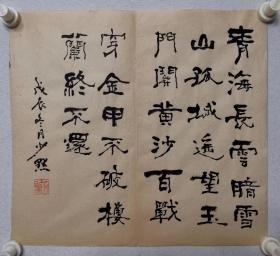 青海長雲暗雪
山孤城遥望玉
門關黄沙百戰
穿金甲不破樓
蘭終不還
戊辰冬月少默